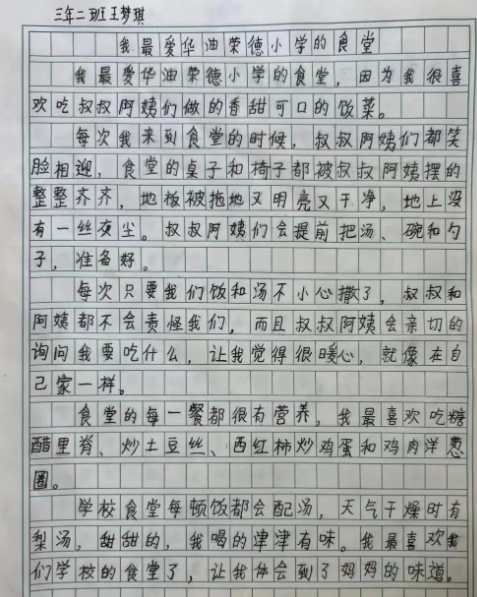 三年二班王梦琪
我最爱华油荣德小学的食堂
我最爱华油荣德小学的食堂，因为我很喜
欢吃叔叔阿姨们做的香甜可口的饭菜。
每次我来到食堂的时候，叔叔阿姨们都笑
脸相迎，食堂的桌子和椅子都被叔叔阿姨摆的
整整齐齐，地板被拖地又明亮又干净，地上没
有一丝灰尘。叔叔阿姨们会提前把汤、碗和勺
子，准备好。
每次只要我们饭和汤不小心撒了，叔叔和
阿姨都不会责怪我们，而且叔叔阿姨会亲切的
询问我要吃什么，让我觉得很暖心，就像在自
己家一样。
食堂的每一餐都很有营养，我最喜欢吃糖
醋里脊、炒土豆丝、西红柿炒鸡蛋和鸡肉洋葱
圈。
学校食堂每顿饭都会配汤，天气干燥时有
梨汤，甜甜的，我喝的津津有味。我最喜欢我
们学校的食堂了，让我体会到了妈妈的味道。